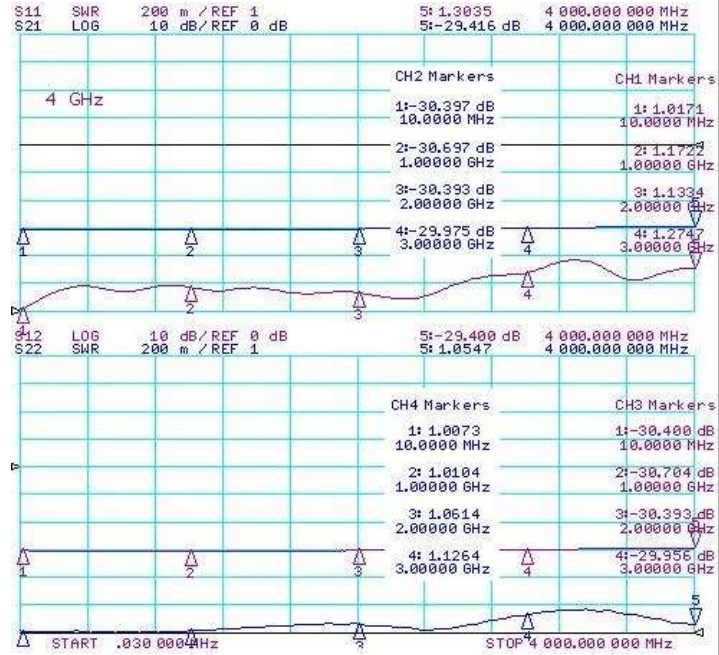 S11 SWR 200 m / REF 1 5: 1.3035 4 000.000 000 MHz
S21 LOG 10 dB/ REF 0 dB 5:-29.416 dB 4 000.000 000 MHz
4 GHz
CH2 Markers
1:-30.397 dB
10.0000 MHz
2:-30.697 dB
1.00000 GHz
3:-30.393 dB
2.00000 GHz
4:-29.975 dB
3.00000 GHz
CH1 Markers
1: 1.0171
10.0000 MHz
2: 1.1722
1.00000 GHz
3: 1.1334
2.00000 GHz
4: 1.2747
3.00000 GHz
1 2 3 4
2 3 4
S12 LOG 10 dB/ REF 0 dB 5:-29.400 dB 4 000.000 000 MHz
S22 SWR 200 m / REF 1 5: 1.0547 4 000.000 000 MHz
CH4 Markers
1: 1.0073
10.0000 MHz
2: 1.0104
1.00000 GHz
3: 1.0614
2.00000 GHz
4: 1.1264
3.00000 GHz
CH3 Markers
1:-30.400 dB
10.0000 MHz
2:-30.704 dB
1.00000 GHz
3:-30.393 dB
2.00000 GHz
4:-29.956 dB
3.00000 GHz
1 2 3 4
5
4
3
START .030 000 MHz STOP 4 000.000 000 MHz